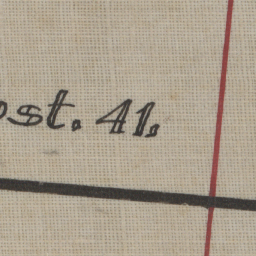 ost. 41.